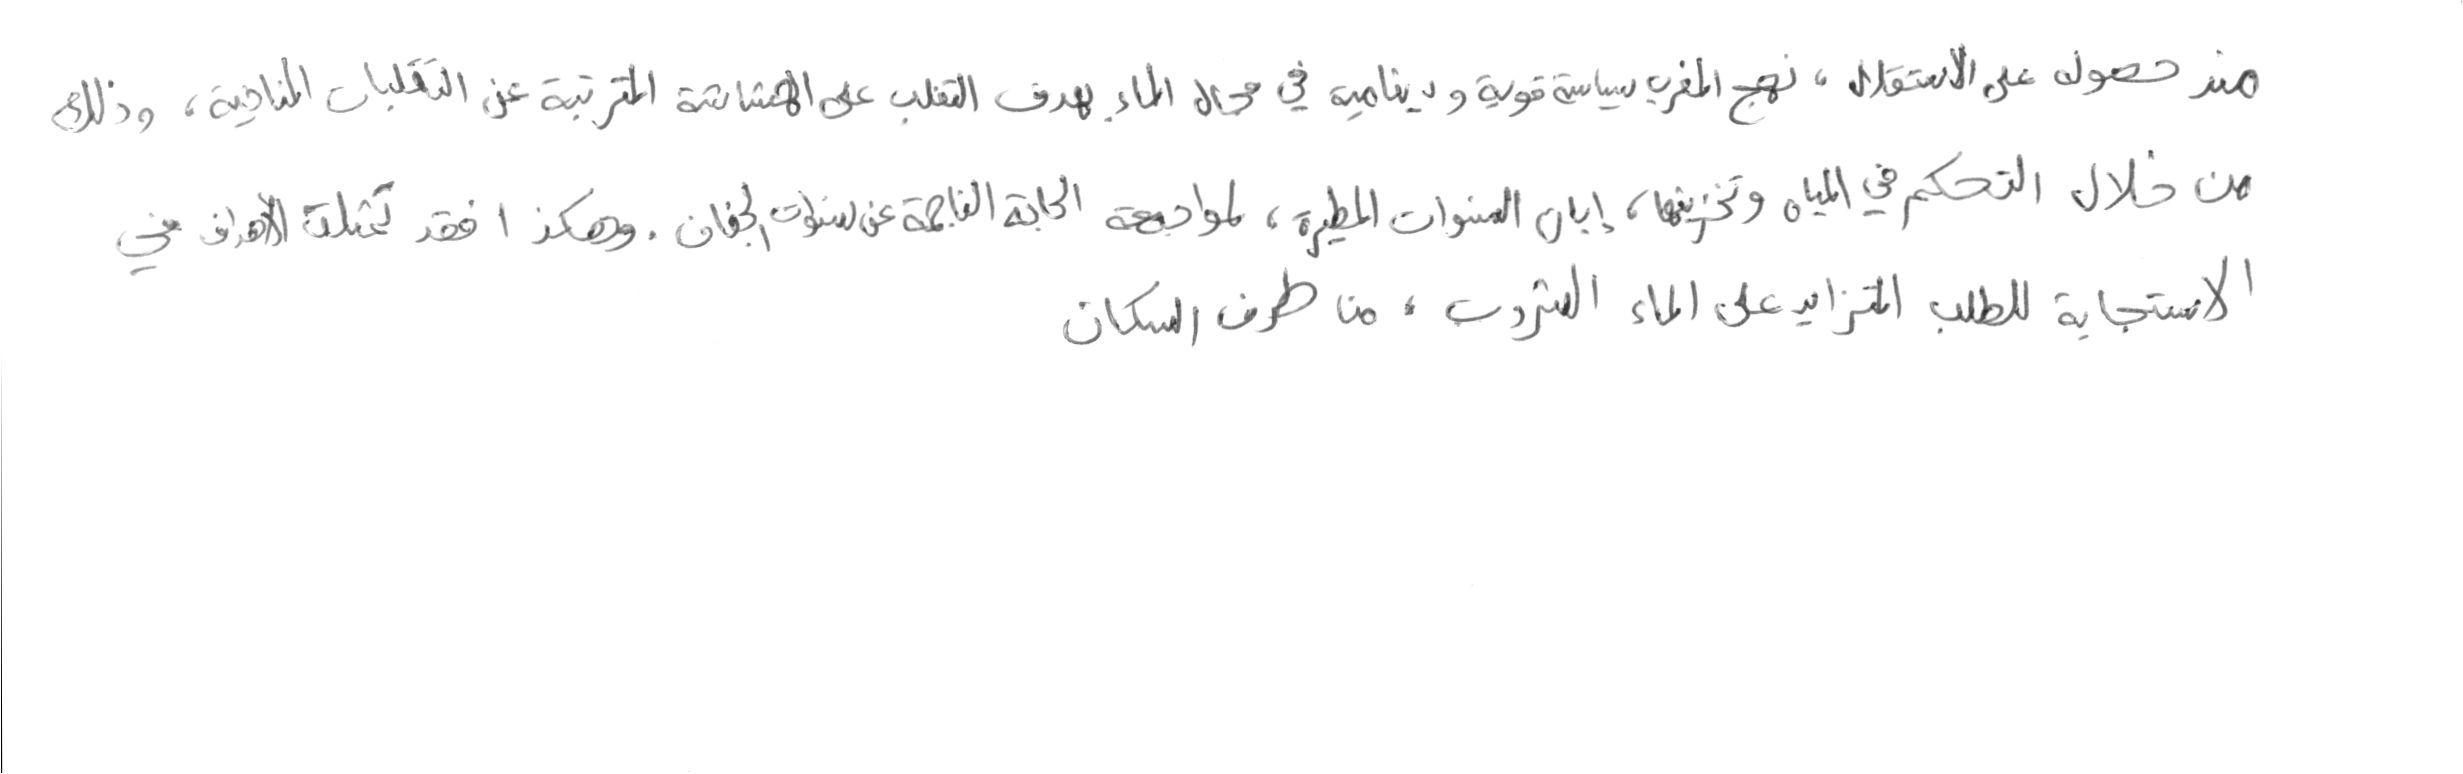 منذ حصوله على الاستقلال، نهج المغرب سياسة قوية ودينامية في مجال الماء بهدف التغلب على الهشاشة المترتبة عن التقلبات المناخية، وذلك
من خلال التحكم في المياه وتخزينها، إبان السنوات المطيرة، لمواجهة الحاجة الناجمة عن سنوات الجفاف. وهكذا فقد تمثلت الأهداف في
الاستجابة للطلب المتزايد على الماء الشروب، من طرف السكان